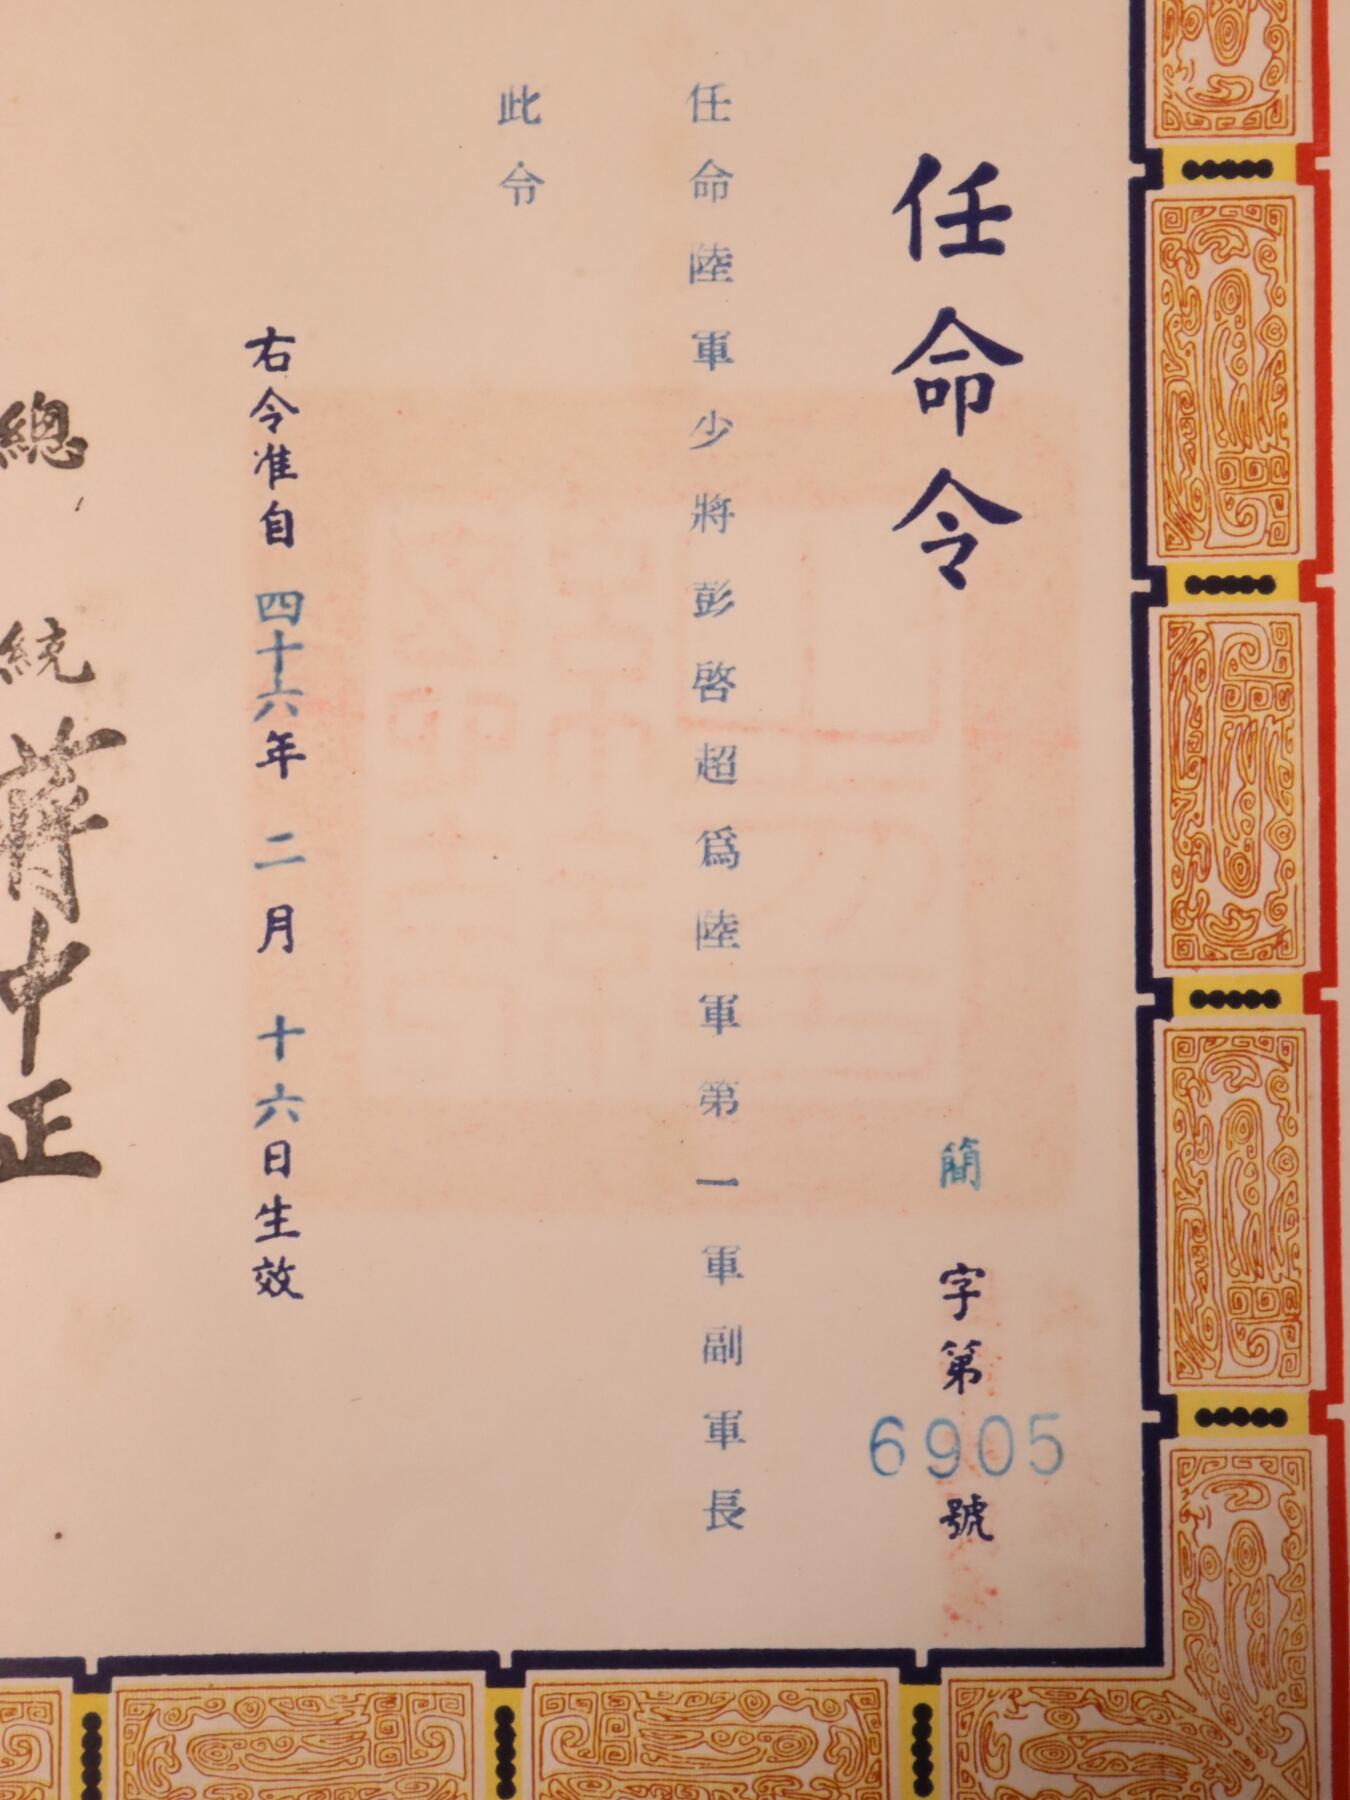 任命令
簡字第6905號
任命陸軍少將彭啓超爲陸軍第一軍副軍長
此令
右令准自四十六年二月十六日生效
總統蔣中正